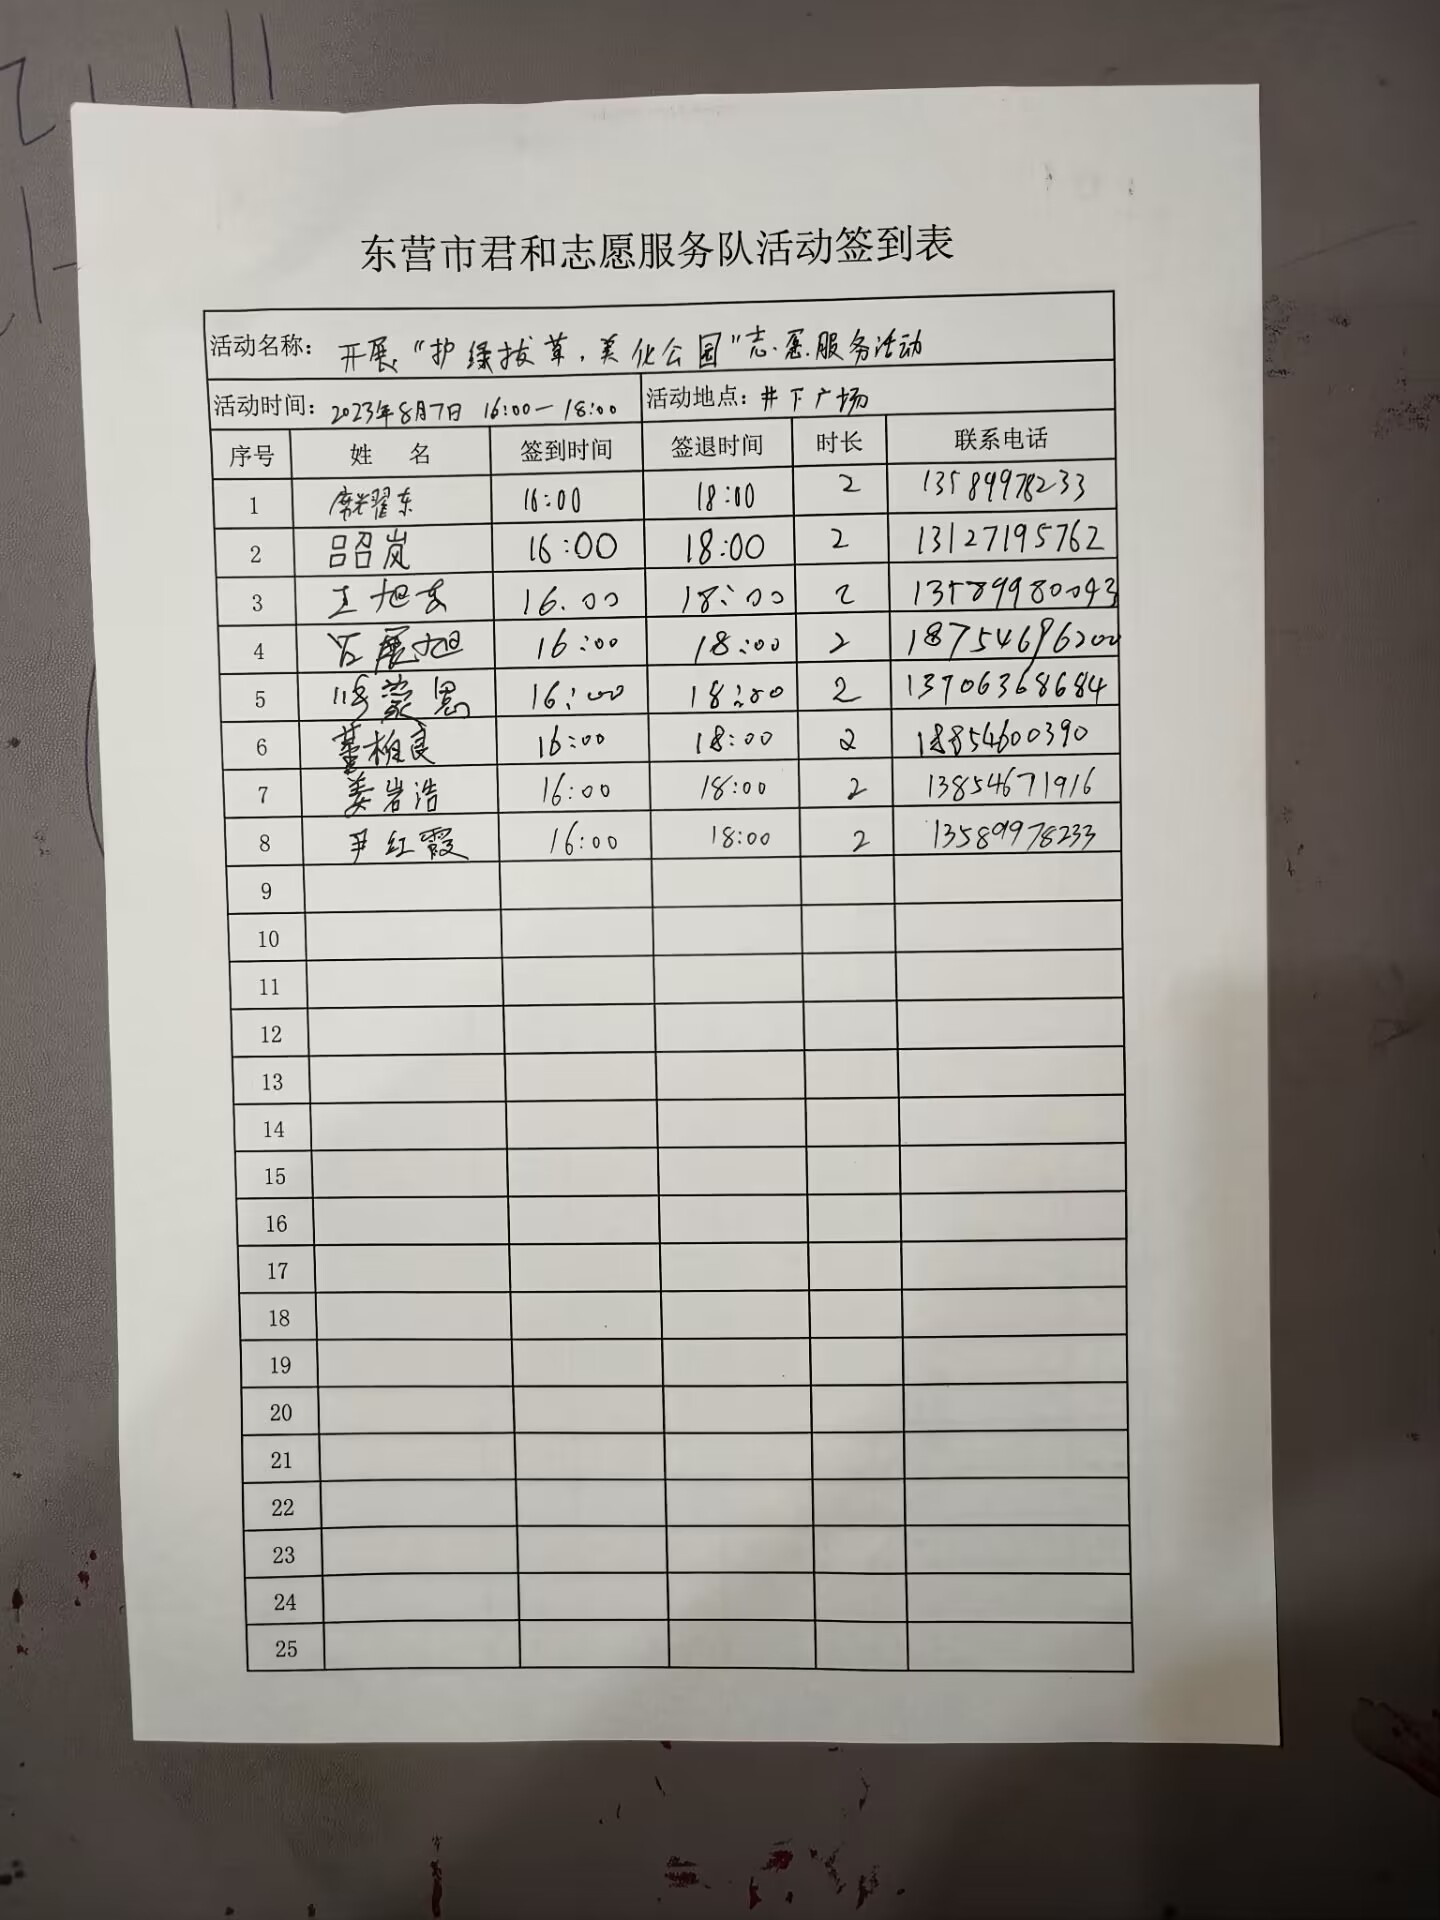 东营市君和志愿服务队活动签到表
活动名称：开展“护绿拔草，美化公园”志愿服务活动
活动时间：2023年8月7日 16:00—18:00 活动地点：井下广场
序号 姓 名 签到时间 签退时间 时长 联系电话
1 耀东 16:00 18:00 2 13589978233
2 吕召岚 16:00 18:00 2 13127195762
3 王旭东 16.00 18:00 2 13589980043
4 展旭 16:00 18:00 2 18754696200
5 蒙恩 16:00 18:00 2 13706368684
6 董柏良 16:00 18:00 2 18854600390
7 姜岩浩 16:00 18:00 2 13854671916
8 尹红霞 16:00 18:00 2 13589978233
9
10
11
12
13
14
15
16
17
18
19
20
21
22
23
24
25